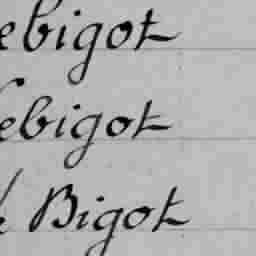 ebigot
ebigot
Bigot